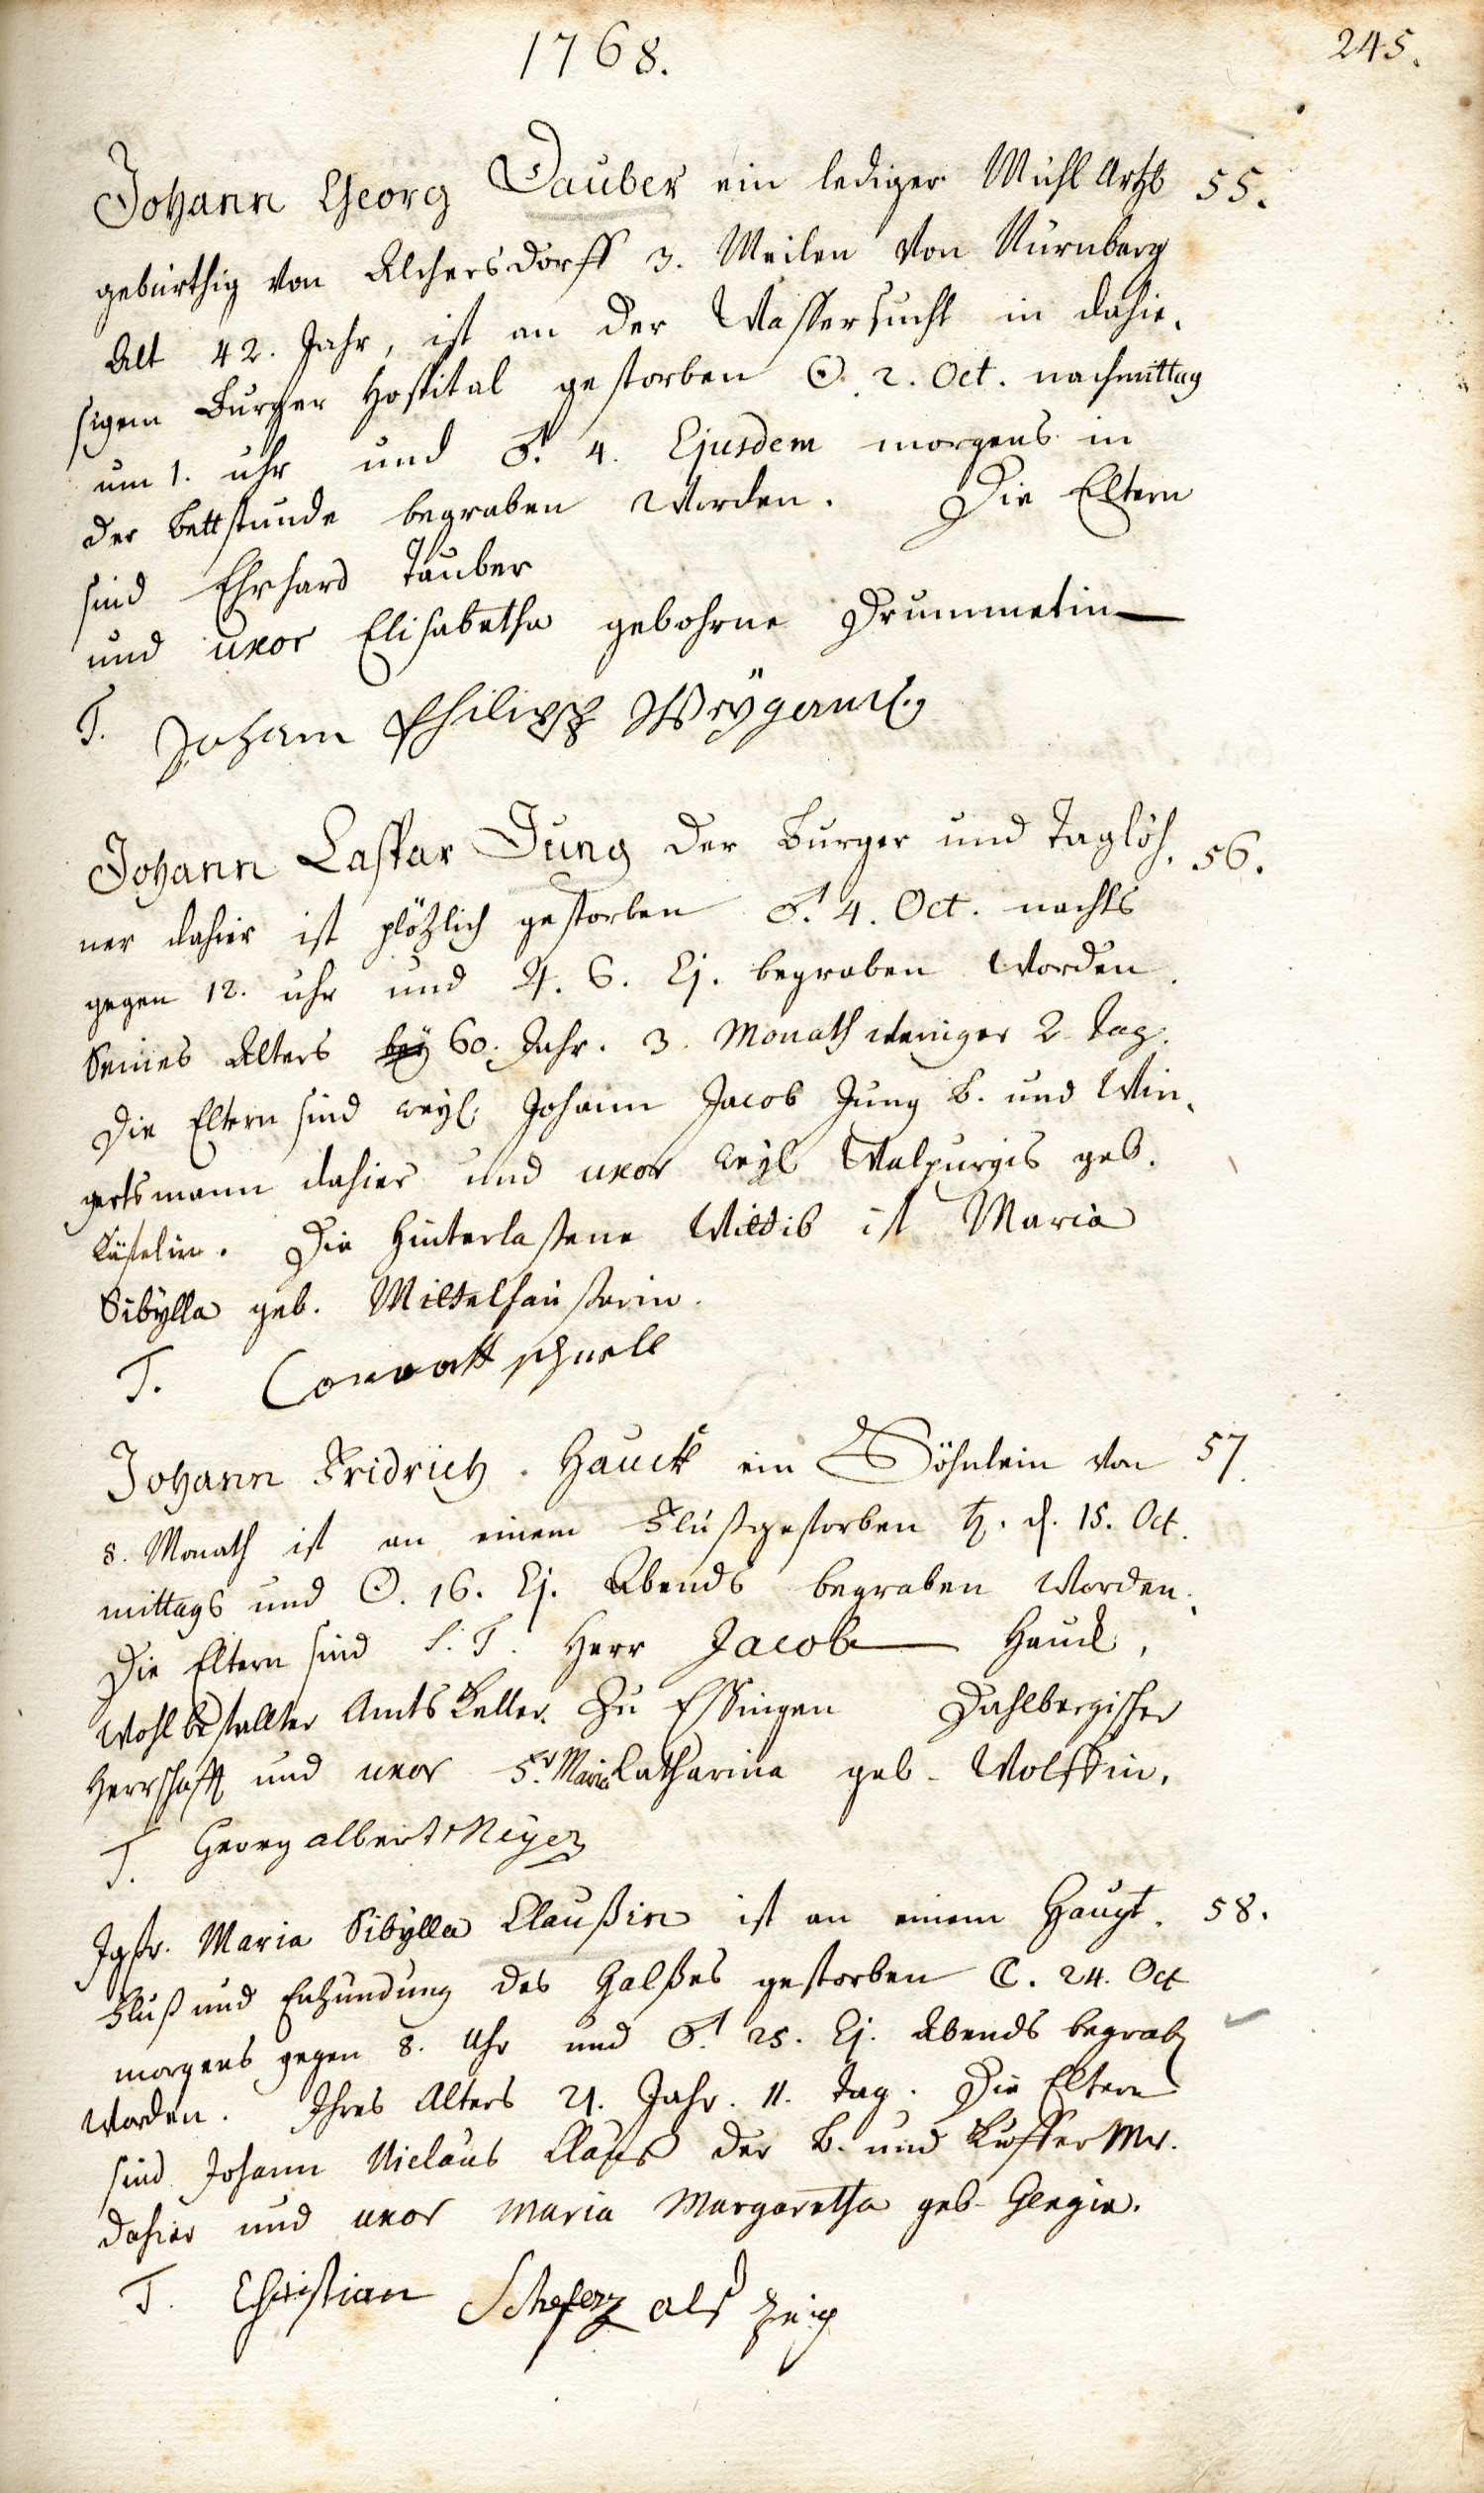 1768.
245.
Johann Georg Dauber ein lediger Mühl Artzt 55.
gebürthig von Alchersdorff 3. Meilen von Nürnberg
Alt 42. Jahr, ist an der Wassersucht in dahie-
sigem Burger Hospital gestorben ☉. 2. Oct. nachmittag
um 1. uhr und ♂. 4. Ejusdem morgens in
der bettstunde begraben worden. Die Eltern
sind Ehrhard Tauber
und uxor Elisabetha gebohrne Drummetin
T. Johann Philipp Weygand
Johann Caspar Jung der Burger und Taglöh- 56.
ner dahier ist plötzlich gestorben ♂. 4. Oct. nachts
gegen 12. uhr und ♃. 6. Ej. begraben worden.
Seines Alters bey 60. Jahr. 3. Monath weniger 2 Tag.
Die Eltern sind weyl. Johann Jacob Jung b. und Win-
gertsmann dahier und uxor weyl Walpurgis geb.
Die hinterlaßene Wittib ist Maria
Sibylla geb. Mittelhaußerin.
T. Conratt schnell
Johann Fridrich Hauck ein Söhnlein von 57.
8. Monath ist an einem Fluß gestorben ♄. d. 15. Oct.
mittags und ☉. 16. Ej. Abends begraben worden.
Die Eltern sind S. T. Herr Jacob Hauck,
Wohlbestallter Amts Keller zu Essingen Dahlbergischer
Herrschafft und uxor Fr. Maria Catharina geb. Wolffin.
T. Georg albert Meyer
Jgfr. Maria Sibylla Claußin ist an einem Haupt- 58.
Fluß und Enzündung des Halßes gestorben ☾. 24. Oct
morgens gegen 8. Uhr und ♂. 25. Ej. Abends begrab
worden. Ihres Alters 21. Jahr. 11. Tag. Die Eltern
sind Johann Niclaus Clauß der b. und Kuffer Mr.
dahier und uxor Maria Margaretha geb.
T. Christian Schefer als zeig